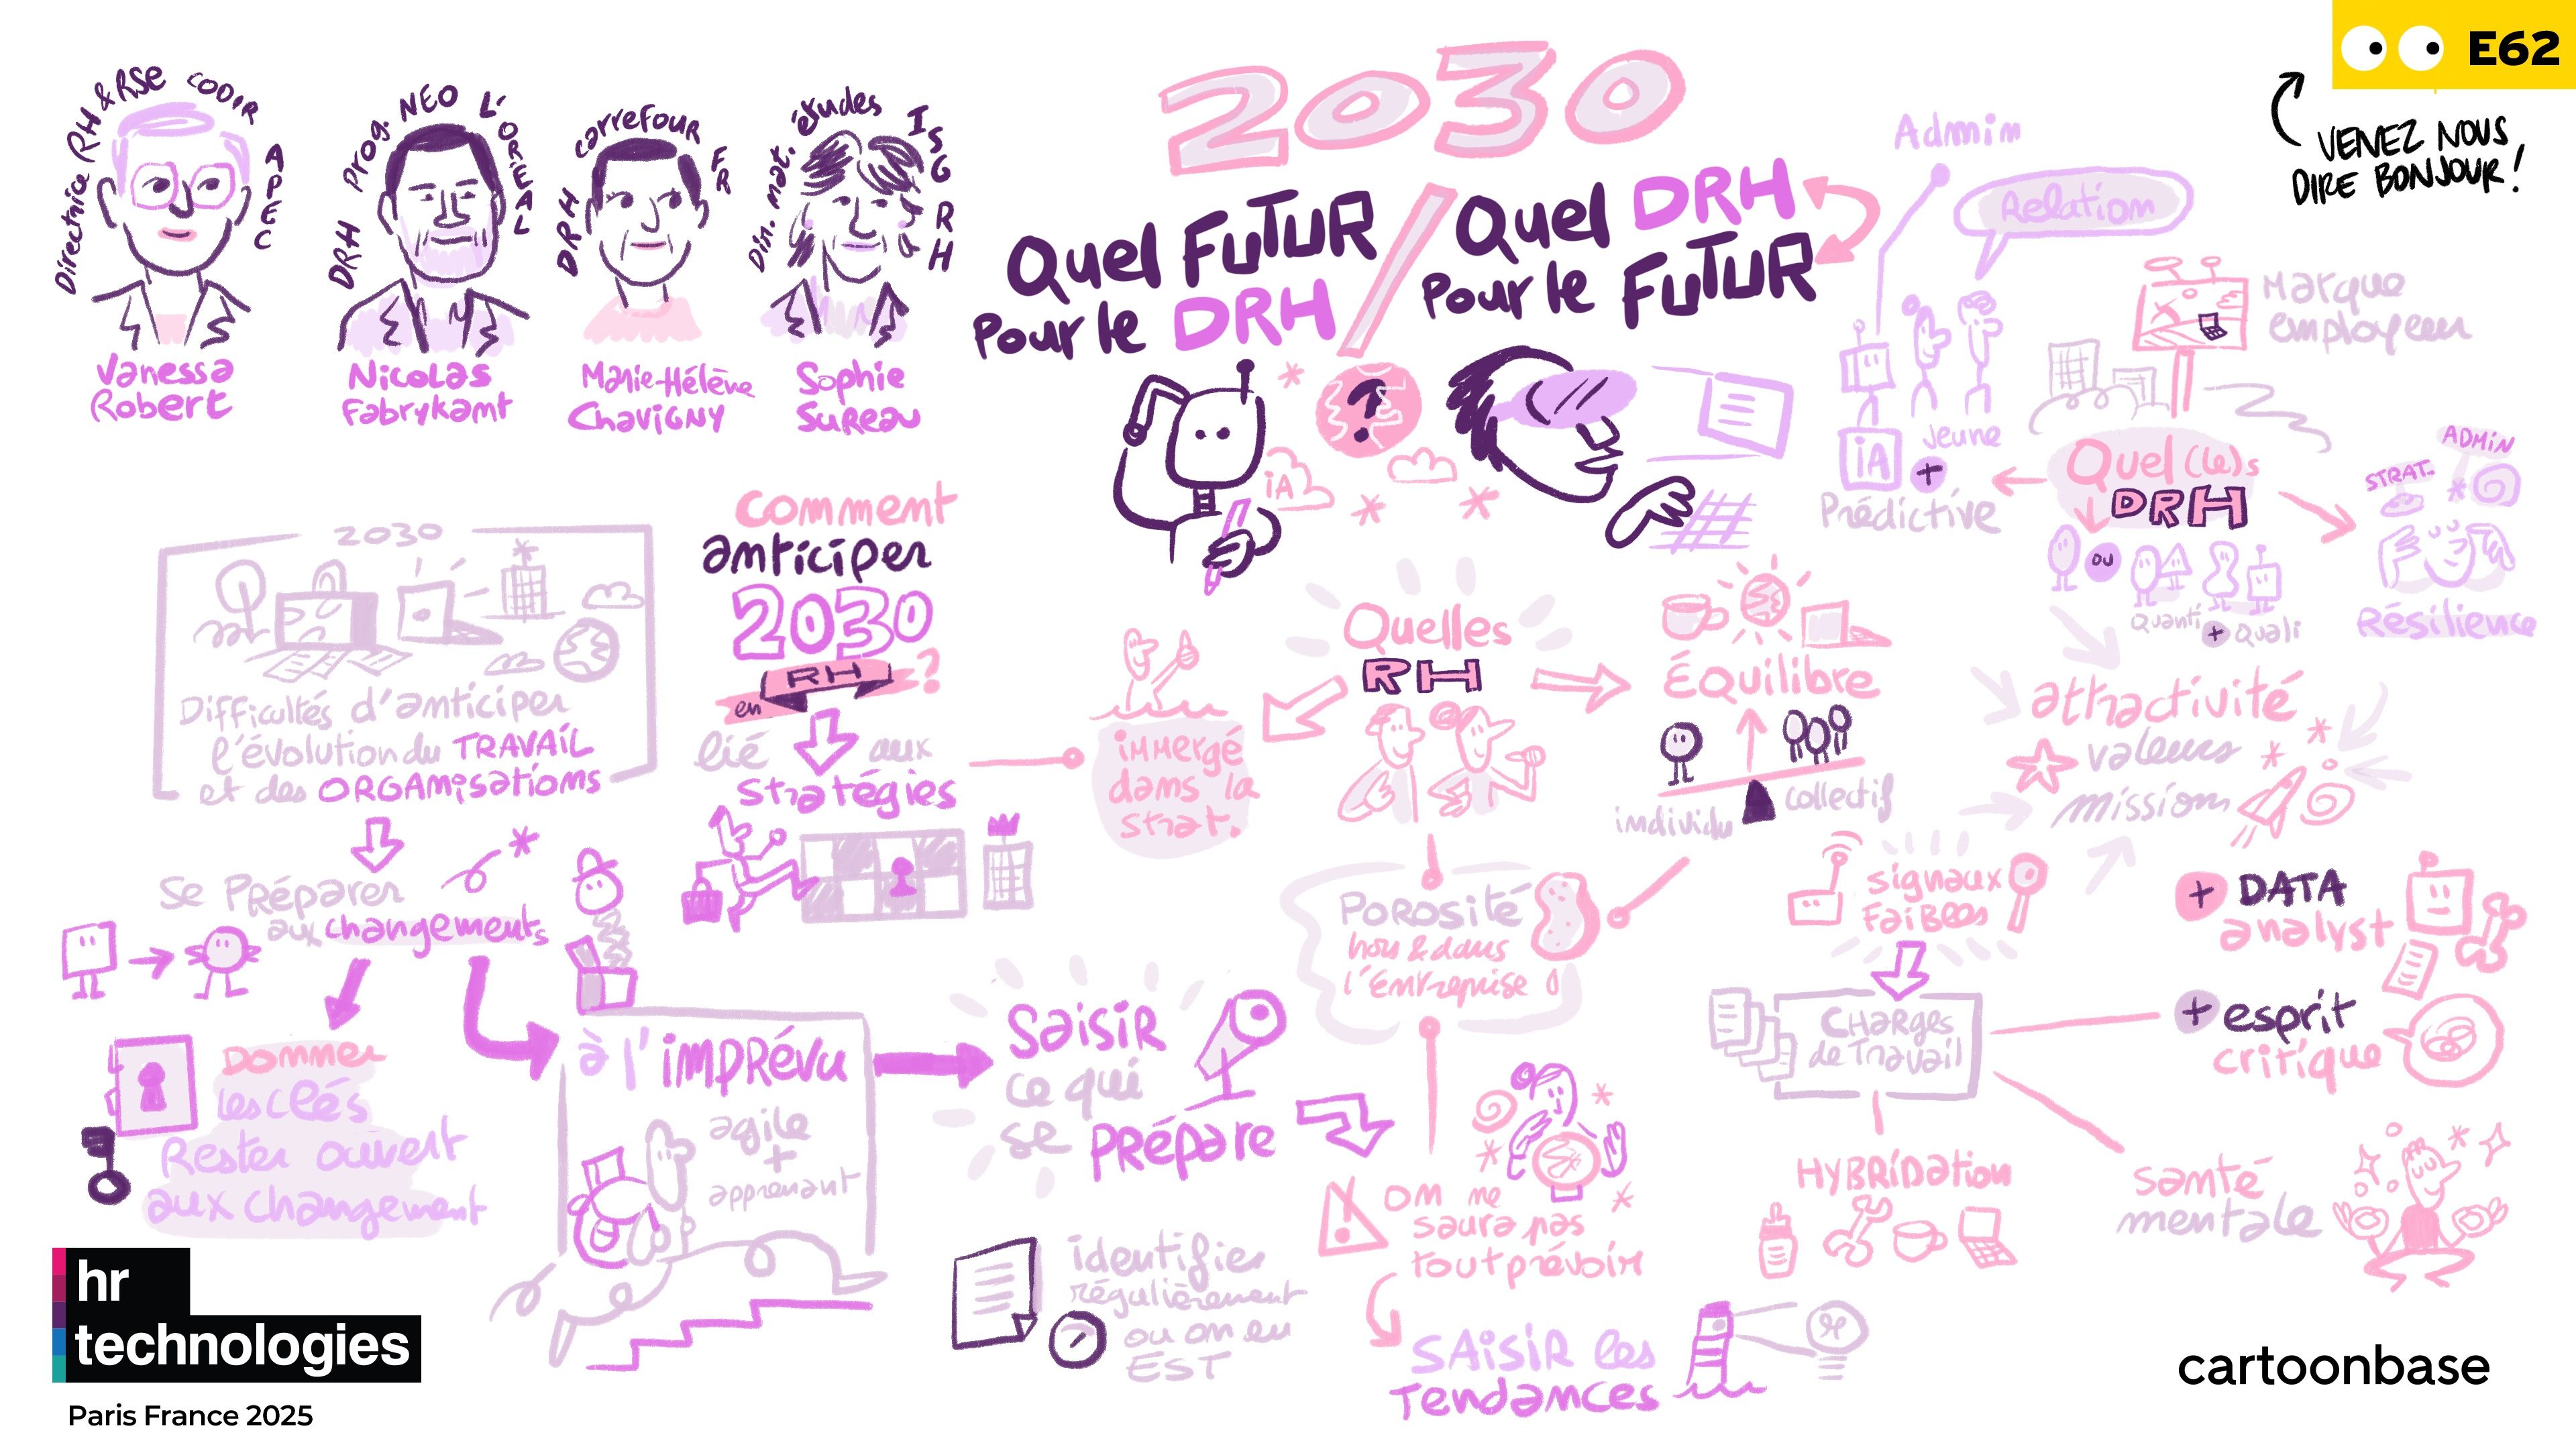 Directrice RH & RSE CODIR APEC
Vanessa
Robert
DRH Prog. NEO L'ORÉAL
Nicolas
Fabrykant
DRH Carrefour FR
Marie-Hélène
Chavigny
études ISG RH
Sophie
Sureau
2030
Quel Futur
Pour le DRH
Quel DRH
Pour le Futur
?
iA
E62
VENEZ NOUS
DIRE BONJOUR !
Admin
Relation
iA
Jeune
+
Prédictive
Marque
employeur
Quel(le)s
DRH
ou
Quanti
+ Quali
STRAT.
ADMIN
Résilience
2030
Difficultés d'anticiper
l'évolution du TRAVAIL
et des ORGANISATIONS
Se Préparer
aux changements
Donner
les clés
Rester ouvert
aux changement
à l'imprévu
agile
+
apprenant
Comment
anticiper
2030
en RH ?
lié aux
Stratégies
Saisir
ce qui
se prépare
identifier
régulièrement
ou on en
EST
Quelles
RH
immergé
dans la
strat.
Équilibre
individu
collectif
Porosité
hors & dans
l'Entreprise
On ne
saura pas
tout prévoir
Saisir les
Tendances
attractivité
valeurs
mission
signaux
Faibles
Charges
de Travail
+ DATA
analyst
+ esprit
critique
Hybridation
santé
mentale
hr
technologies
Paris France 2025
cartoonbase